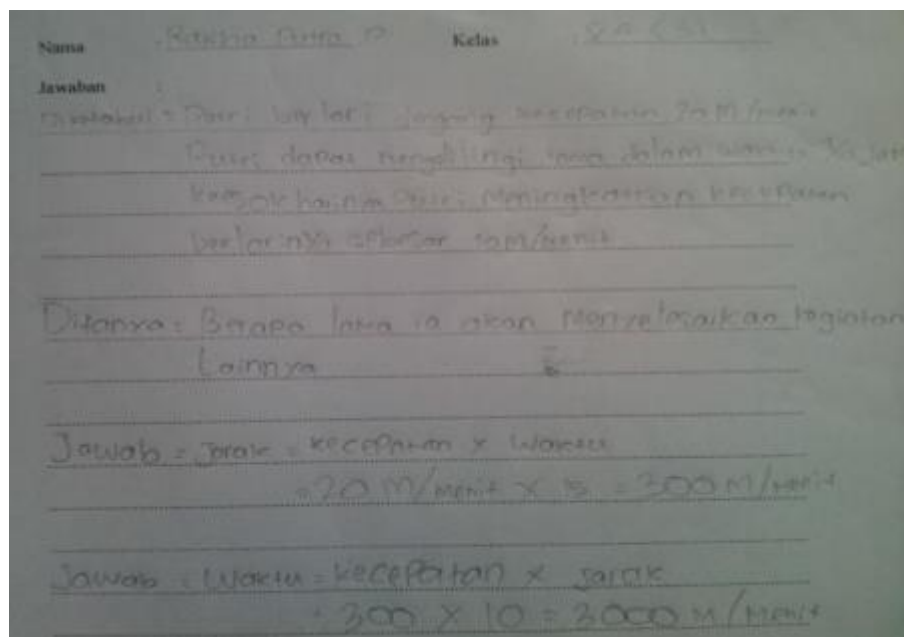 Nama : Putra P Kelas :
Jawaban :
= Putri lari jogging kecepatan 20 m/menit
Putri dapat mengelilingi dalam 1/4 jam
hainya Putri Meningkatkan kecepatan
berlarinya sebesar 10m/menit
Ditanya = Berapa lama ia akan Menyelesaikan kegiatan
Lainnya
Jawab = Jarak = kecepatan x Waktu
= 20 M/menit x 15 = 300 M/menit
Jawab = Waktu = kecepatan x jarak
= 300 x 10 = 3000 M/Menit